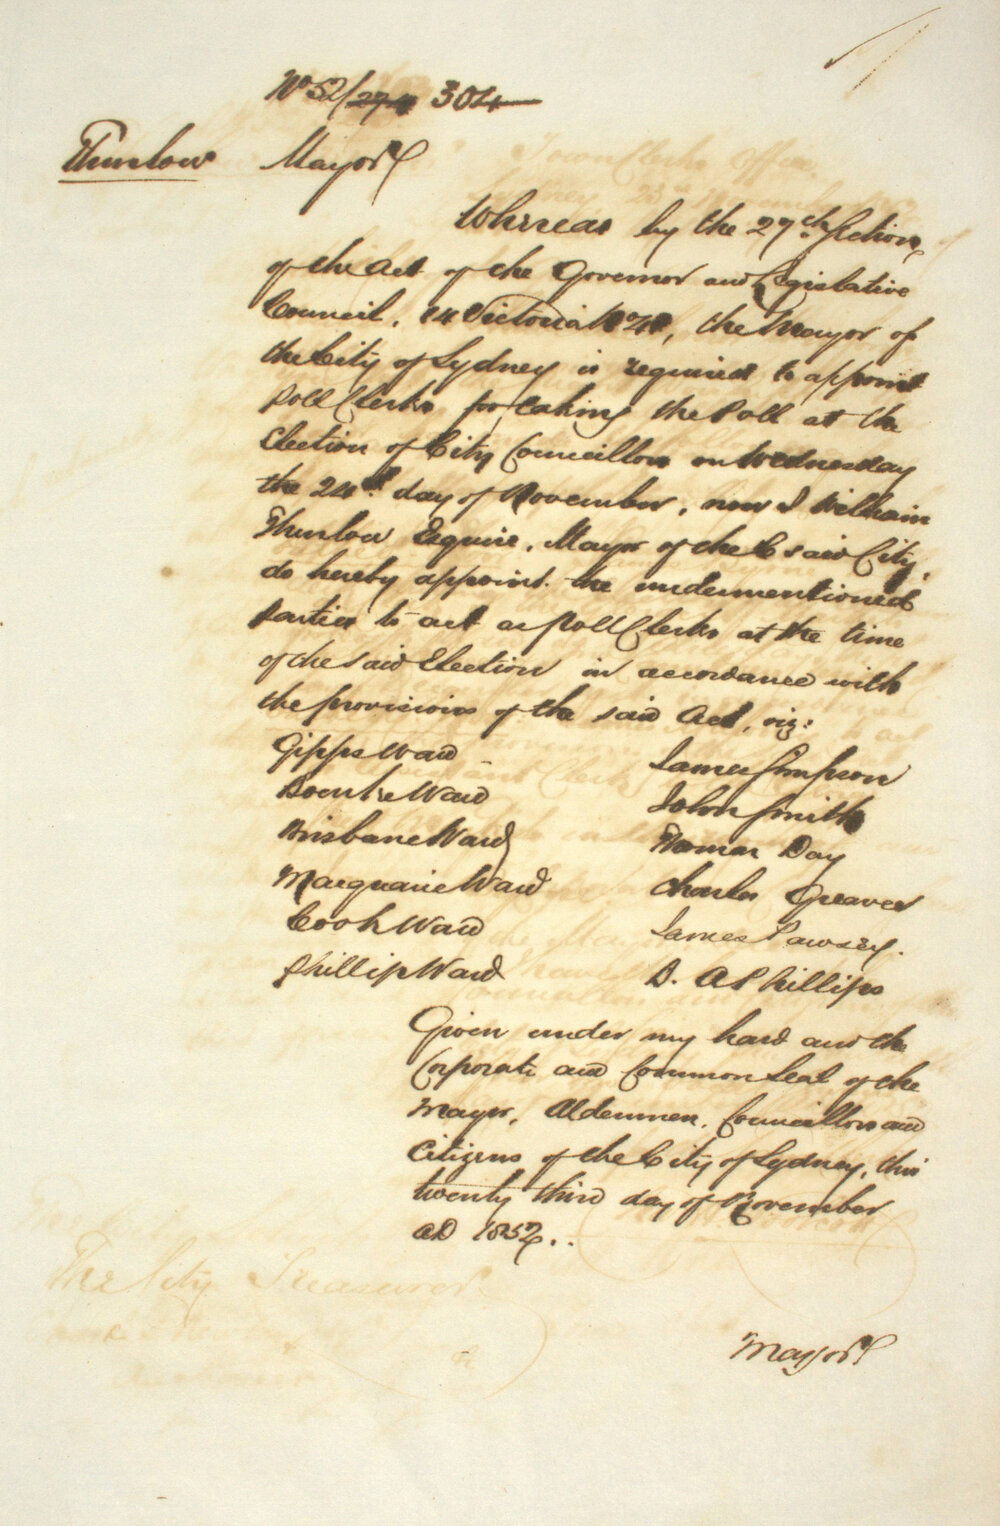 No 52/274 304
Thurlow Mayor
Whereas by the 27th Section
of the Act of the Governor and Legislative
Council, 14 Victoria No 41, the Mayor of
the City of Sydney is required to appoint
Poll Clerks for taking the Poll at the
Election of City Councillors on Wednesday
the 24th day of November, now I William
Thurlow Esquire, Mayor of the said City,
do hereby appoint the undermentioned
parties to act as Poll Clerks at the time
of the said Election in accordance with
the provisions of the said Act, viz:
Gipps Ward James Simpson
Bourke Ward John Smith
Brisbane Ward Thomas Day
Macquarie Ward Charles Greaves
Cook Ward James Pawsey.
Phillip Ward B. A Phillips
Given under my hand and the
Corporate and Common Seal of the
Mayor, Aldermen, Councillors and
Citizens of the City of Sydney, this
twenty third day of November
AD 1852.
Mayor
The City Treasurer